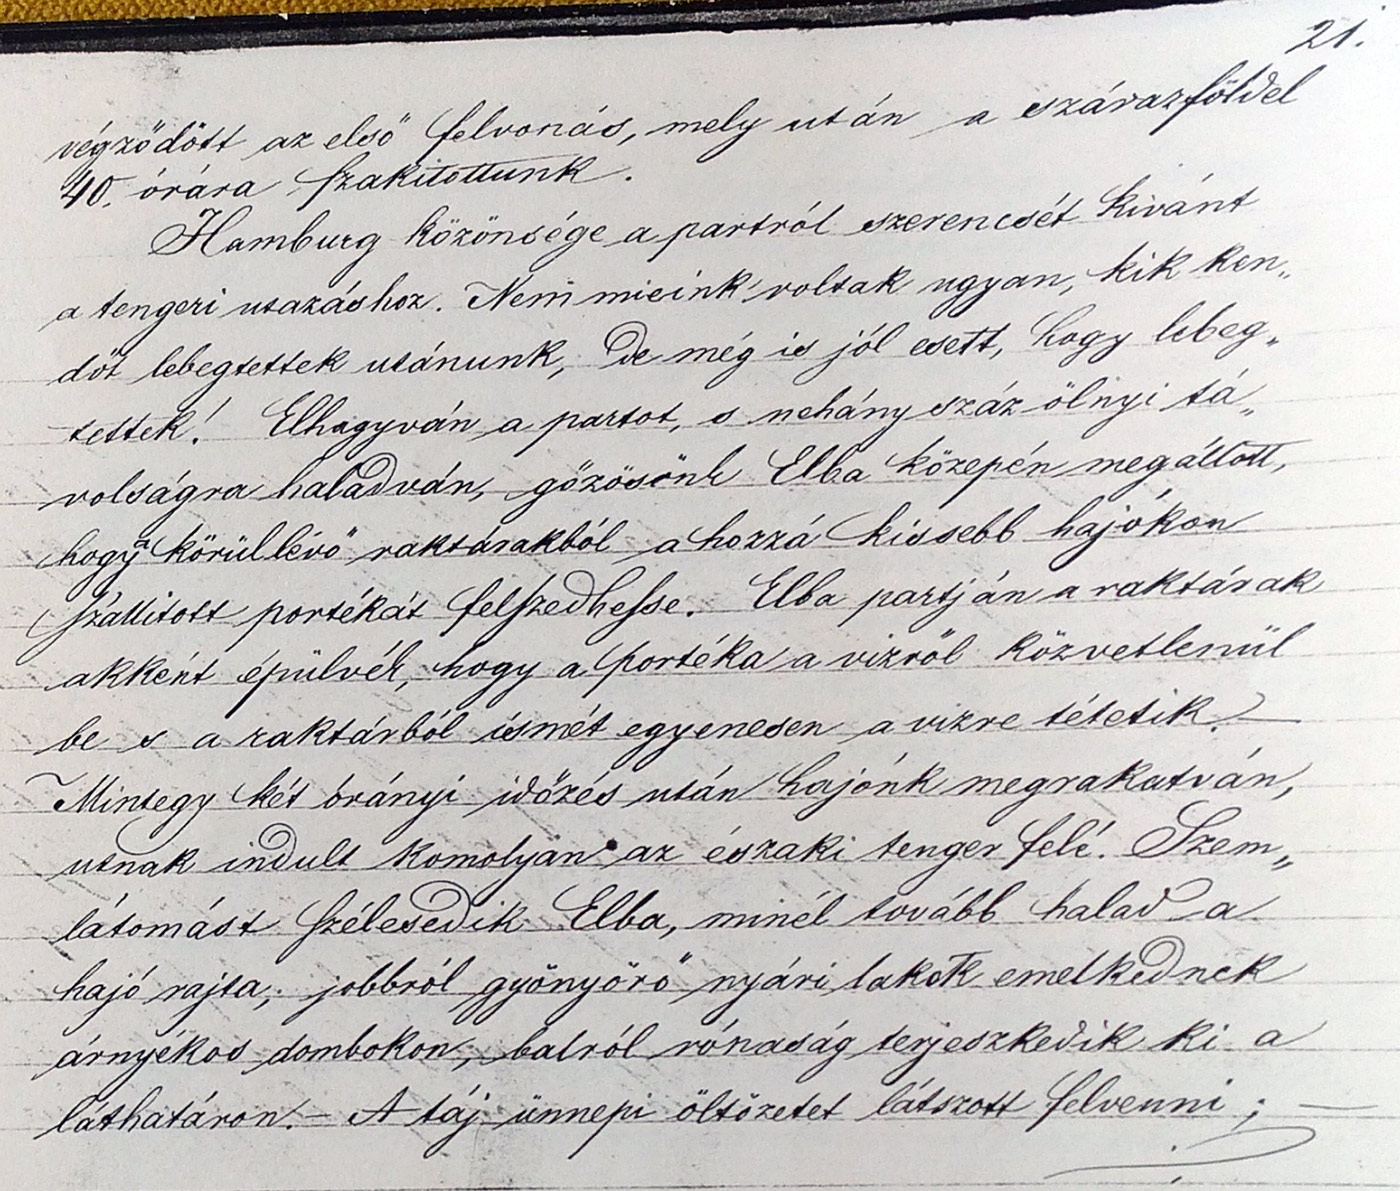 21.
végződött az első felvonás, mely után a szárazföldel
40. órára szakitottunk.
Hamburg közönsége a partról szerencsét kivánt
a tengeri utazáshoz. Nem mieink voltak ugyan, kik ken„
döt lebegtettek utánunk, de még is jól esett, hogy lebeg„
tettek! Elhagyván a partot, s nehány száz ölnyi tá„
volságra haladván, gőzösönk Elba közepén megállott,
hogy a körüllévő raktárakból a hozzá kissebb hajókon
szállitott portékát felszedhesse. Elba partján a raktárak
akként épülvék, hogy a portéka a vizről közvetlenül
be s a raktárból ismét egyenesen a vizre tétetik. —
Mintegy két órányi időzés után hajónk megrakatván,
utnak indult komolyan az északi tenger felé. Szem„
látomást szélesedik Elba, minél tovább halad a
hajó rajta, jobbról gyönyörő nyári lakok emelkednek
árnyékos dombokon, balról rónaság terjeszkedik ki a
láthatáron. — A táj ünnepi öltözetet látszott felvenni; —